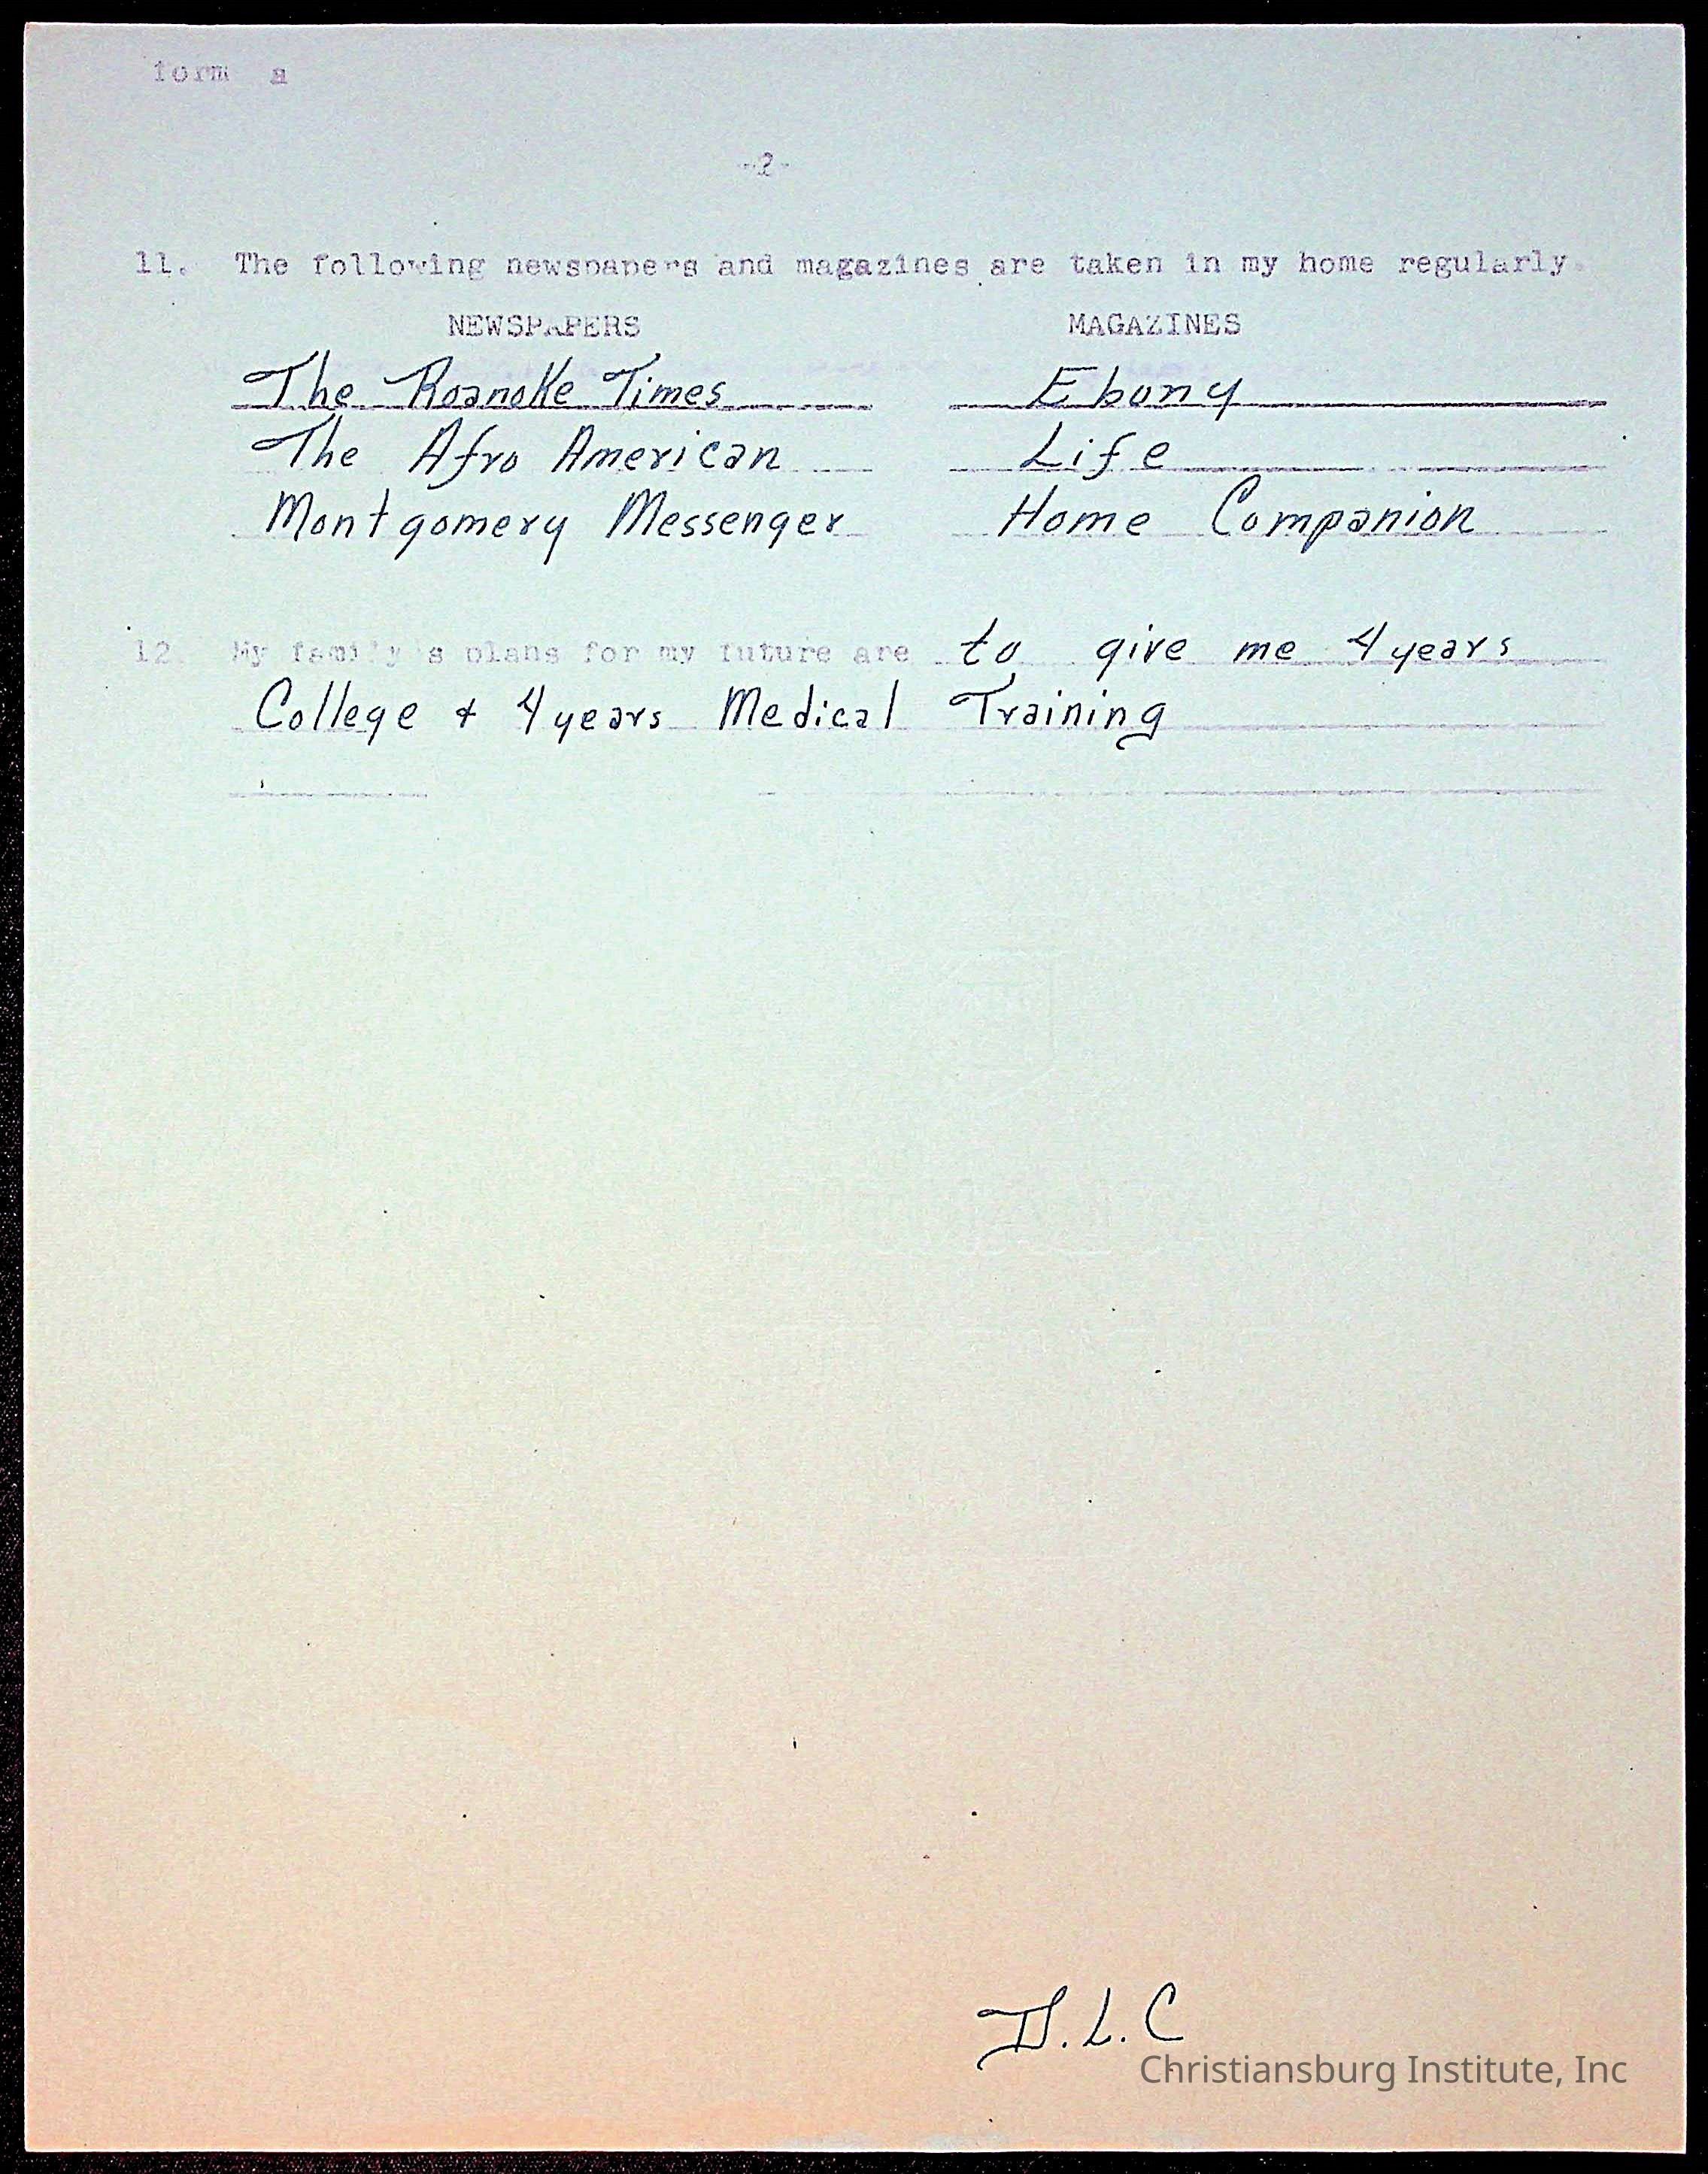 form a
-2-
11. The following newspapers and magazines are taken in my home regularly.
NEWSPAPERS MAGAZINES
The Roanoke Times Ebony
The Afro American Life
Montgomery Messenger Home Companion
12. My family's plans for my future are to give me 4 years
College & 4 years Medical Training
L.C
Christiansburg Institute, Inc